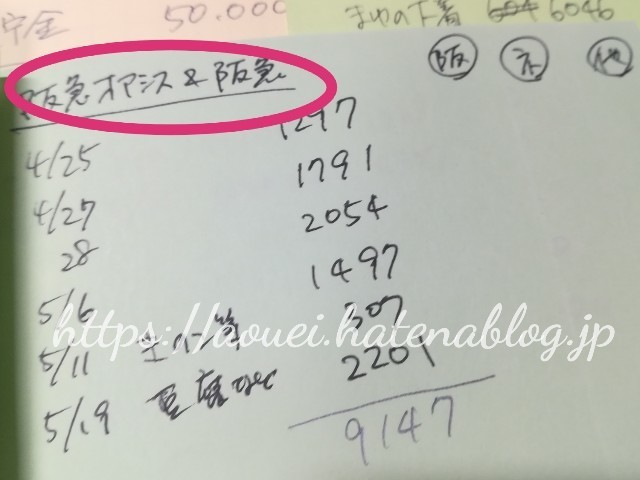 貯金 50.000
まゆの下着 6046
阪 ネ 他
阪急オアシス & 阪急
4/25 1297
4/27 1791
28 2054
5/6 1497
5/11 307
5/19 豆腐etc 2201
9147
https://aouei.hatenablog.jp